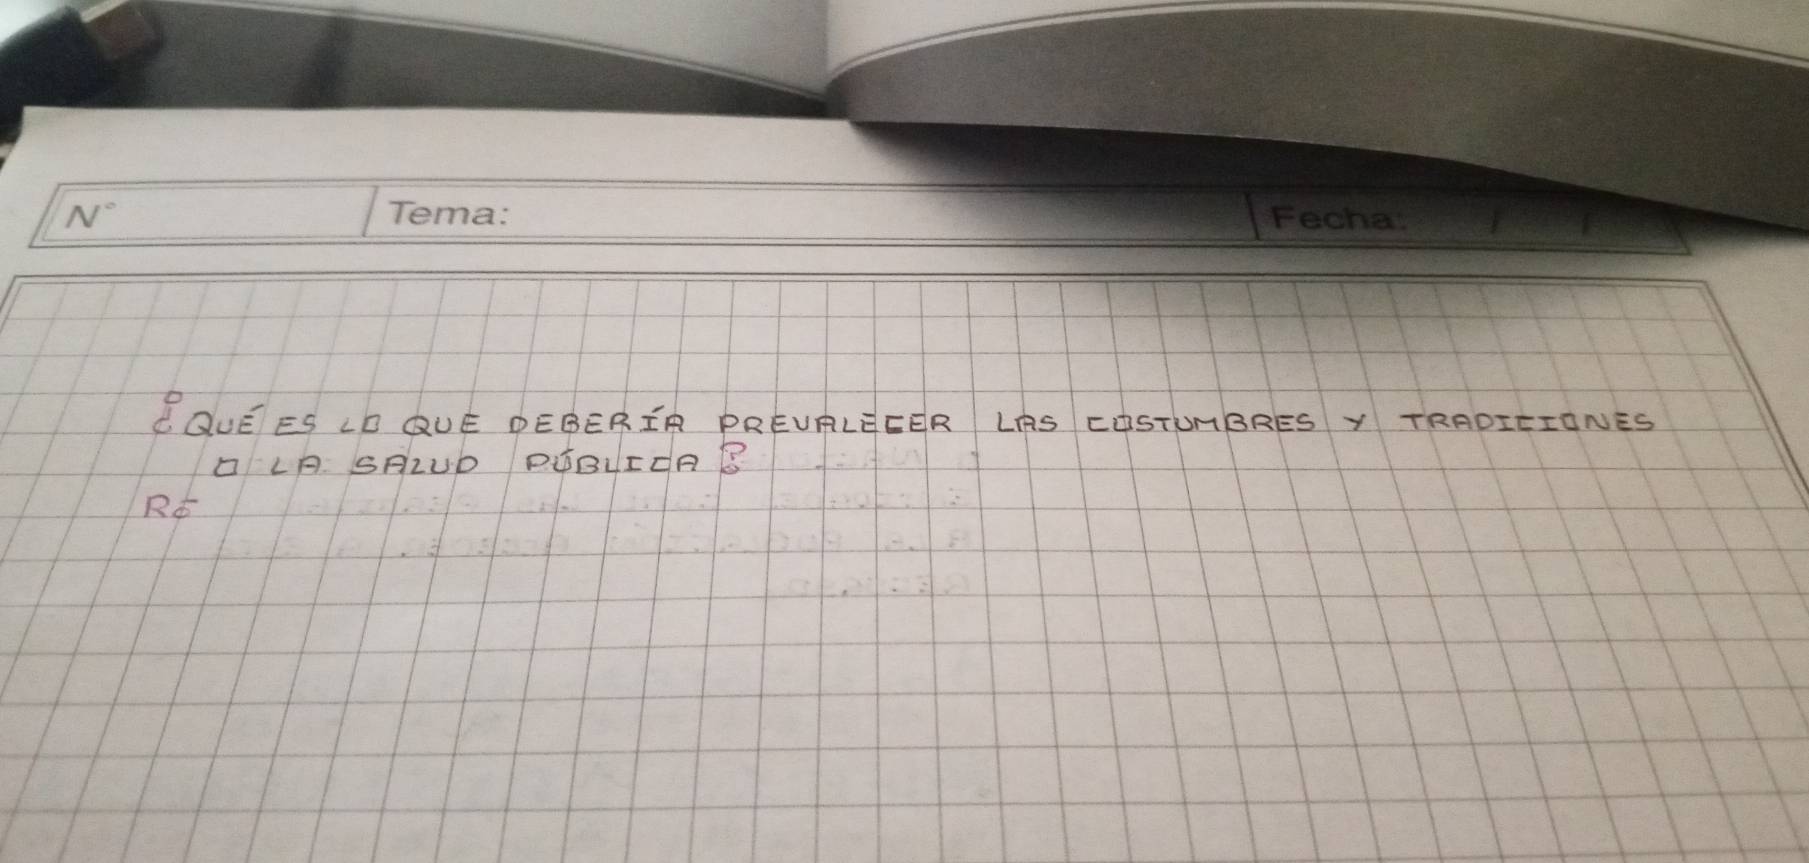 N° Tema: Fecha: / /
¿QUÉ ES LO QUE DEBERÍA PREVALECER LAS COSTUMBRES Y TRADICIONES
O LA SALUD PÚBLICA?
R: